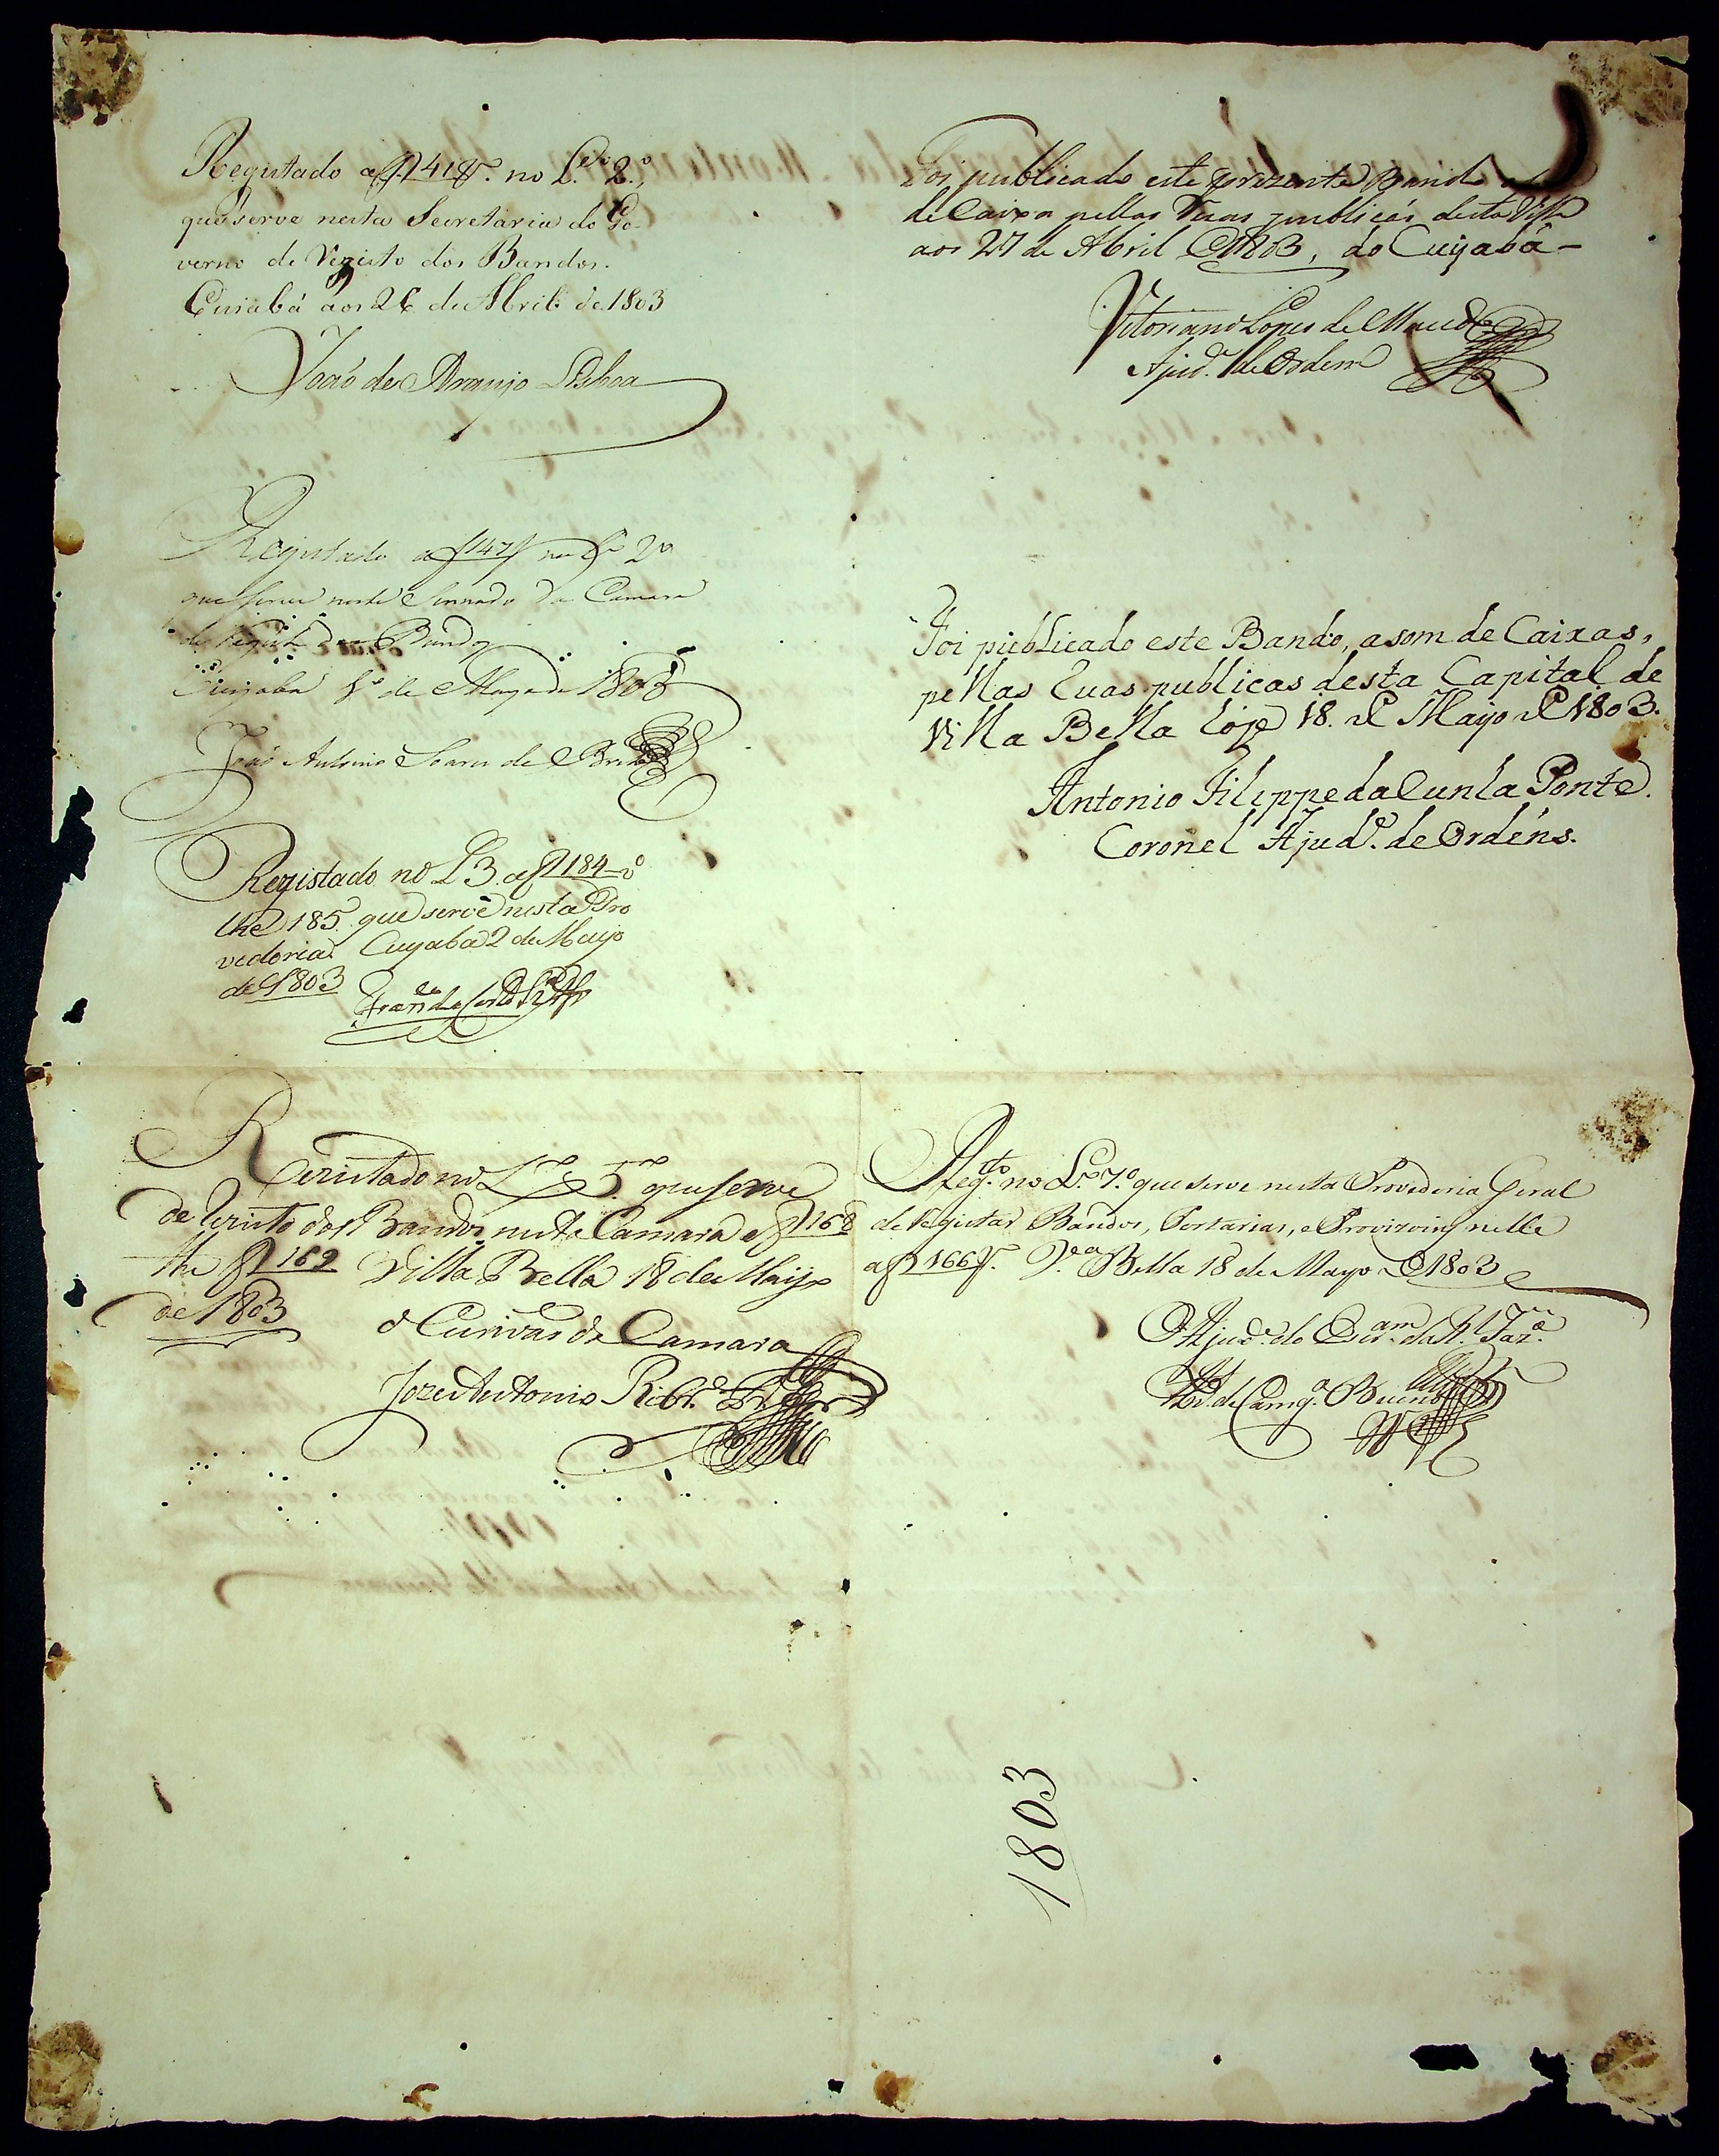 Registado a f. 141 v. no L.º 2.º,
que serve nesta Secretaria do Go-
verno de Rezisto dos Bandos.
Cuiabá aos 26 de Abril de 1803
João de Araujo Lisboa
Foi publicado este prezente Bando
de Caixa pellas Ruas publicas desta Villa
aos 27 de Abril de 1803, do Cuyabá –
Vitoriano Lopes de Macedo
Ajud.e de Ordem
Registado a f 147 no L.º 2º
que serve neste Sennado da Camera
de Registo dos Bandos
Cuyaba 1º de Mayo de 1803
João Antonio Soares de Brito
Foi publicado este Bando, a som de Caixas,
pellas Ruas publicas desta Capital de
Villa Bella hoje 18. de Mayo de 1803.
Antonio Filippe da Cunha Ponte.
Coronel Ajud.e de Ordéns.
Registado no L 3. a f 184 v
the 185. que serve nesta Pro
vedoria. Cuyaba 2 de Mayo
de 1803
Rezistado no L.º 5.º que serve
de rezisto dos Bandos nesta Camara a f 168
the f 169 Villa Bella 18 de Mayo
de 1803
o Escrivão da Camara
Joze Antonio Ribr.º
Reg.to no L.º 7.º que serve nesta Provedoria Geral
de registar Bandos, Portarias, e Provizoins nelle
a f 166 v. V.a Bella 18 de Mayo de 1803
O Ajud.e do Escr.am da R. Faz.da
de Camg.o Bueno
1803